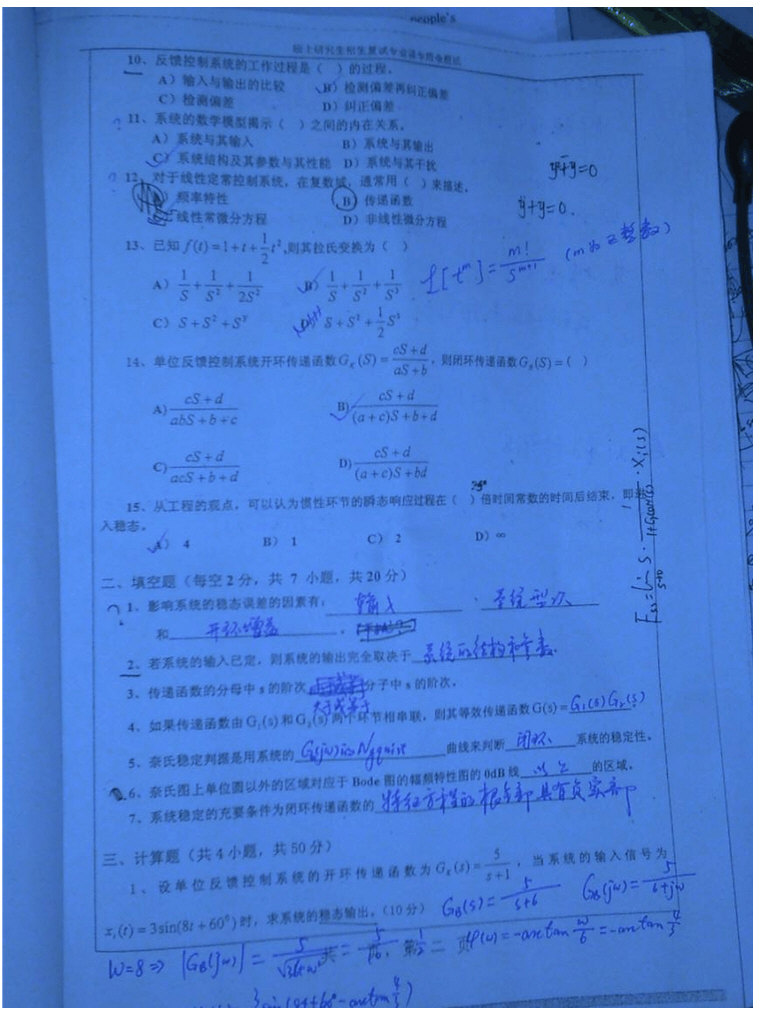 people's
硕士研究生招生复试专业课专用命题纸
10、反馈控制系统的工作过程是（ ）的过程。
A）输入与输出的比较 B）检测偏差再纠正偏差
C）检测偏差 D）纠正偏差
? 11、系统的数学模型揭示（ ）之间的内在关系。
A）系统与其输入 B）系统与其输出
C）系统结构及其参数与其性能 D）系统与其干扰
? 12、对于线性定常控制系统，在复数域，通常用（ ）来描述。
频率特性 B）传递函数
线性常微分方程 D）非线性微分方程
ÿ+y=0.
13、已知 f(t)=1+t+\frac{1}{2}t²,则其拉氏变换为（ ）
A）\frac{1}{S}+\frac{1}{S²}+\frac{1}{2S²} B）\frac{1}{S}+\frac{1}{S²}+\frac{1}{S³} £[t^m]=\frac{m!}{S^{m+1}} (m为正整数)
C）S+S²+S³ S+S²+\frac{1}{2}S³
14、单位反馈控制系统开环传递函数G_K(S)=\frac{cS+d}{aS+b}，则闭环传递函数G_B(S)=（ ）
A)\frac{cS+d}{abS+b+c} B)\frac{cS+d}{(a+c)S+b+d}
C)\frac{cS+d}{acS+b+d} D)\frac{cS+d}{(a+c)S+bd}
15、从工程的观点，可以认为惯性环节的瞬态响应过程在（ ）倍时间常数的时间后结束，即进
入稳态。
A）4 B）1 C）2 D）∞
二、填空题（每空2分，共 7 小题，共20分）
1、影响系统的稳态误差的因素有，输入、系统型次
和 开环增益。
2、若系统的输入已定，则系统的输出完全取决于 系统的结构和参数.
3、传递函数的分母中s的阶次 大于或等于 分子中s的阶次。
4、如果传递函数由G₁(s)和G₂(s)两个环节相串联，则其等效传递函数G(s)=G₁(s)G₂(s)
5、奈氏稳定判据是用系统的 G(jω)的Nyquist 曲线来判断 闭环 系统的稳定性。
6、奈氏图上单位圆以外的区域对应于Bode图的幅频特性图的0dB线 以上 的区域。
7、系统稳定的充要条件为闭环传递函数的 特征方程的根全部具有负实部
三、计算题（共4小题，共50分）
1、设单位反馈控制系统的开环传递函数为G_K(s)=\frac{5}{s+1}，当系统的输入信号为
x_i(t)=3sin(8t+60⁰)时，求系统的稳态输出。(10分) G_B(s)=\frac{5}{s+6} G_B(jω)=\frac{5}{6+jω}
ω=8 => |G_B(jω)|=\frac{5}{\sqrt{36+ω²}}=\frac{5}{10}=\frac{1}{2} φ(ω)=-arctan\frac{ω}{6}=-arctan\frac{4}{3}
3sin(8t+60°-arctan\frac{4}{3})